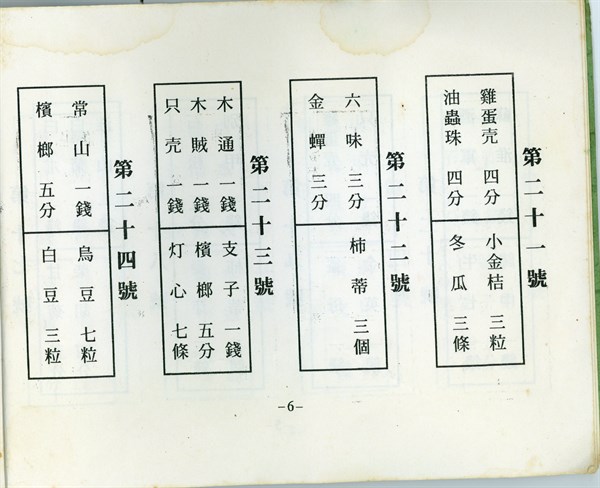 第二十一號
雞蛋壳 四分
小金桔 三粒
油蟲珠 四分
冬瓜 三條
第二十二號
六味 三分
柿蒂 三個
金蟬 三分
第二十三號
木通 一錢
支子 一錢
木賊 一錢
檳榔 五分
只壳 一錢
灯心 七條
第二十四號
常山 一錢
烏豆 七粒
檳榔 五分
白豆 三粒
-6-